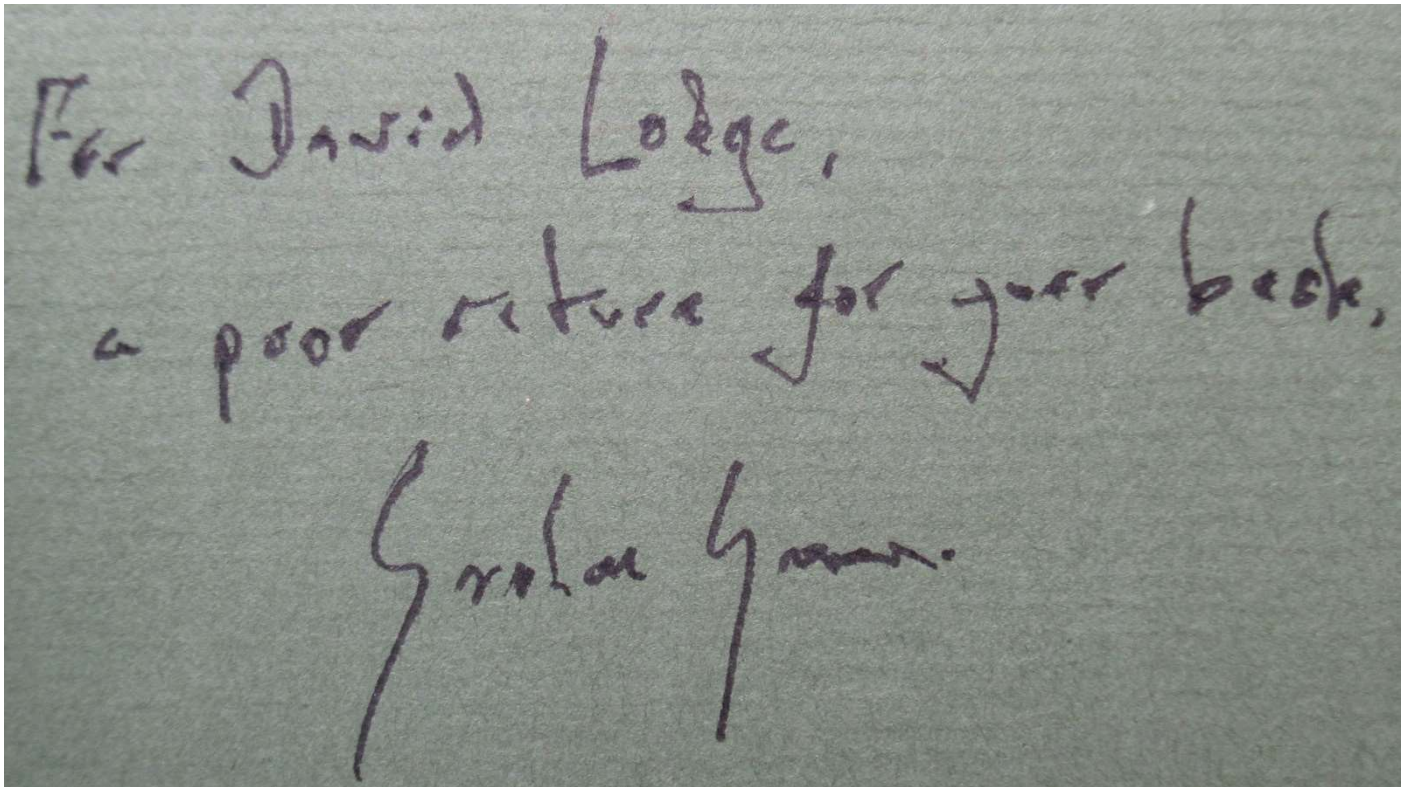 For David Lodge,
a poor return for your book.
Graham Greene.